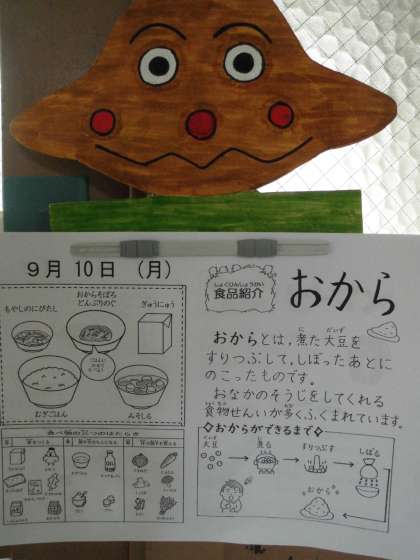 9月 10日 (月)
おからそぼろ
どんぶりのぐ
もやしのにびたし
ぎゅうにゅう
ごはんに
むぎごはん
みそしる
食べ物の三つのはたらき
しょくひんしょうかい
食品紹介
おから
おからとは、煮た大豆を
すりつぶして、しぼったあとに
のこったものです。
おなかのそうじをしてくれる
食物せんいが多くふくまれています。
◇おからができるまで◇
大豆
煮る
すりつぶす
しぼる
おから